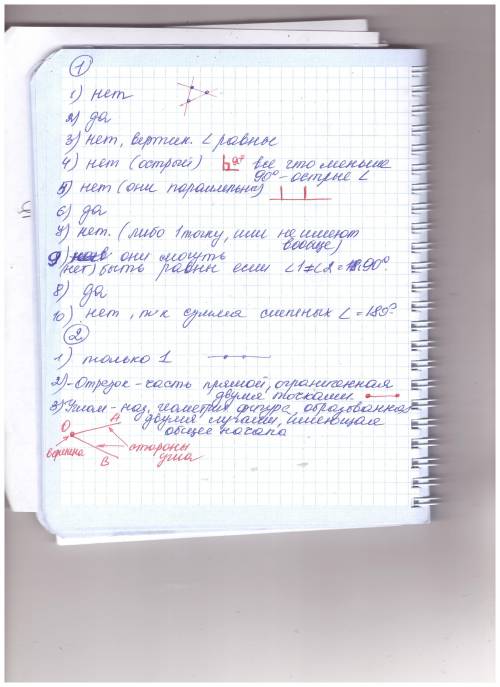 1
1) нет
2) да
3) нет, вертик. ∠ равны
4) нет (острый) 90° все что меньше
90° - острые ∠
5) нет (они параллельны)
6) да
7) нет. (либо 1 точку, или не имеют
вообще)
9) они могут
(нет) быть равны если ∠1 и ∠2 = 90°.
8) да
10) нет, т.к сумма смежных ∠ = 180°
2
1) только 1
2) - Отрезок - часть прямой, ограниченная
двумя точками.
3) Углом - наз. геометрич фигура, образованная
двумя лучами, имеющими
общее начало
О А
вершина
В
стороны
угла